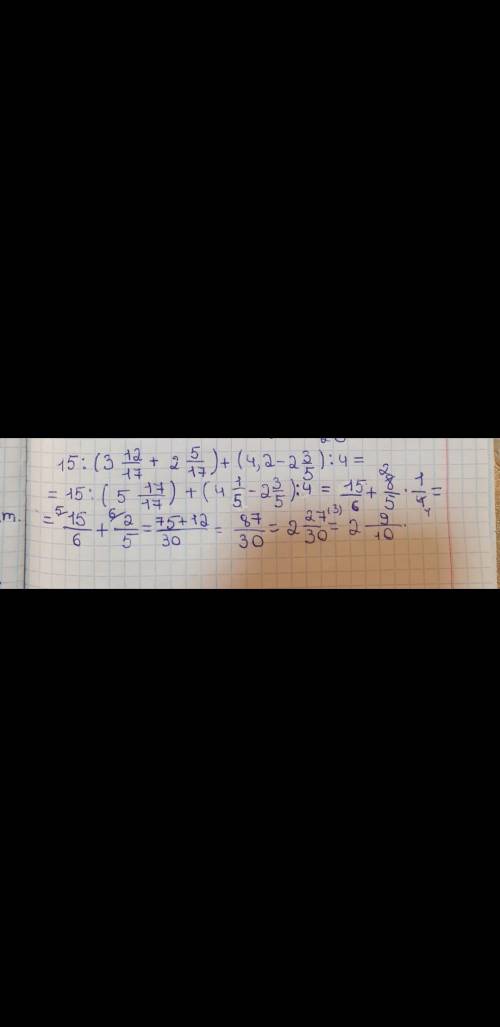 15:(3 12/17 + 2 5/17)+(4,2-2 3/5):4=
=15:(5 17/17)+(4 1/5-2 3/5):4=15/6+8/5·1/4=
т. =15/6+2/5=75+12/30=87/30=2 27/30=2 9/10.